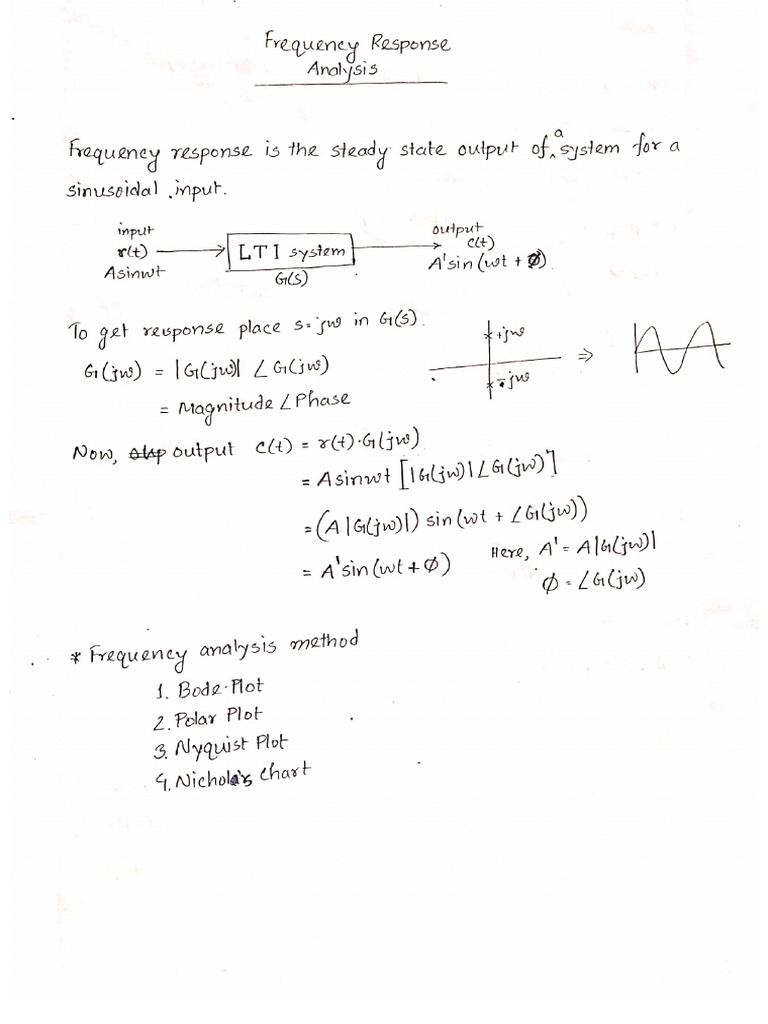 Frequency Response
Analysis
Frequency response is the steady state output of a system for a
sinusoidal input.
input
r(t)
Asinωt
LTI system
G(s)
output
c(t)
A'sin(ωt + Ø)
To get response place s=jω in G(s).
G(jω) = |G(jω)| ∠G(jω)
= Magnitude ∠Phase
+jω
-jω
⇒
Now, output c(t) = r(t)·G(jω)
= Asinωt [|G(jω)|∠G(jω)]
= (A|G(jω)|) sin(ωt + ∠G(jω))
= A'sin(ωt + Ø)
Here, A' = A|G(jω)|
Ø = ∠G(jω)
* Frequency analysis method
1. Bode Plot
2. Polar Plot
3. Nyquist Plot
4. Nichols chart